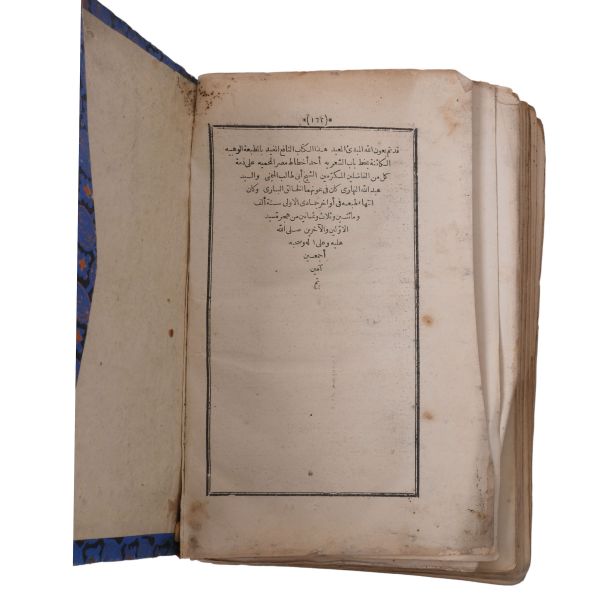 *(١٦٤)*
قد تم بعون الله المبدئ المعيد هذا الكتاب النافع المفيد بالمطبعة الوهبيه
الكائنة بخط باب الشعريه أحد أخطاط مصر المحميه على ذمة
كل من الفاضلين المكرمين الشيخ أبى طالب والسيد
عبد الله النهاوى كان فى عونهما الخالق البارى وكان
انتهاء طبعه فى أواخر جمادى الاولى سنة ألف
ومائتين وثلاث وثمانين من هجرة سيد
الاولين والآخرين صلى الله
عليه وعلى آله وصحبه
أجمعين
آمين
تم